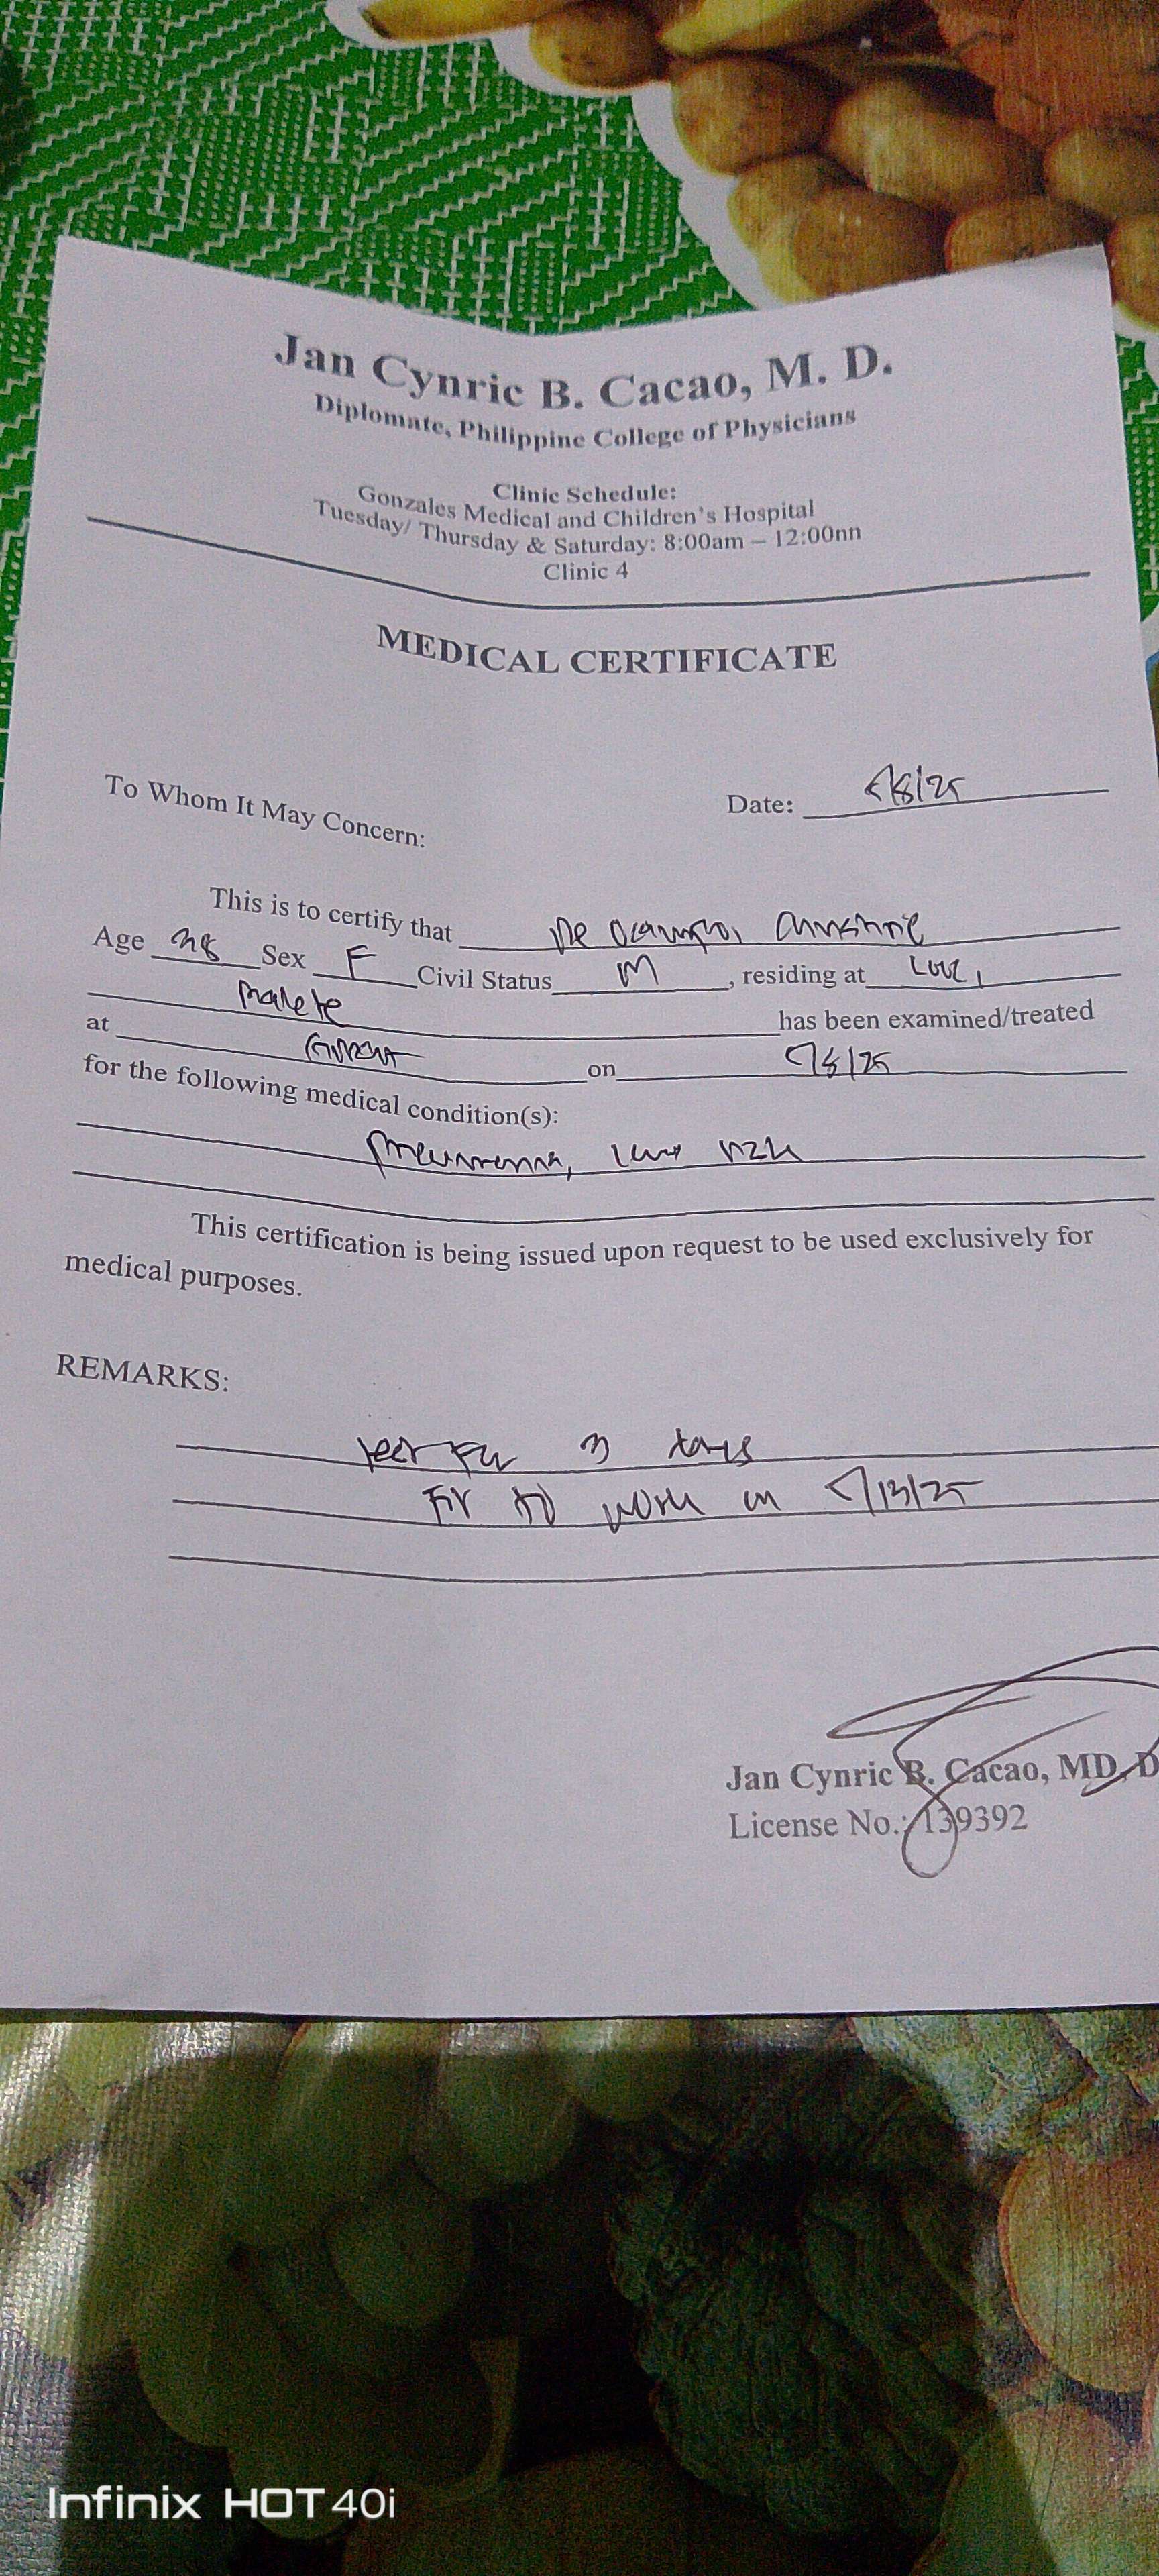 Jan Cynric B. Cacao, M. D.
Diplomate, Philippine College of Physicians
Clinic Schedule:
Gonzales Medical and Children's Hospital
Tuesday/ Thursday & Saturday: 8:00am – 12:00nn
Clinic 4
MEDICAL CERTIFICATE
To Whom It May Concern:
Date: 5/8/25
This is to certify that De Ocampo,
Age Sex F Civil Status M, residing at
has been examined/treated
at on 5/8/25
for the following medical condition(s):
Pneumonia, low risk
This certification is being issued upon request to be used exclusively for
medical purposes.
REMARKS:
rest for 3 days
Fit to work on 5/13/25
Jan Cynric B. Cacao, MD, D
License No.: 139392
Infinix HOT 40i